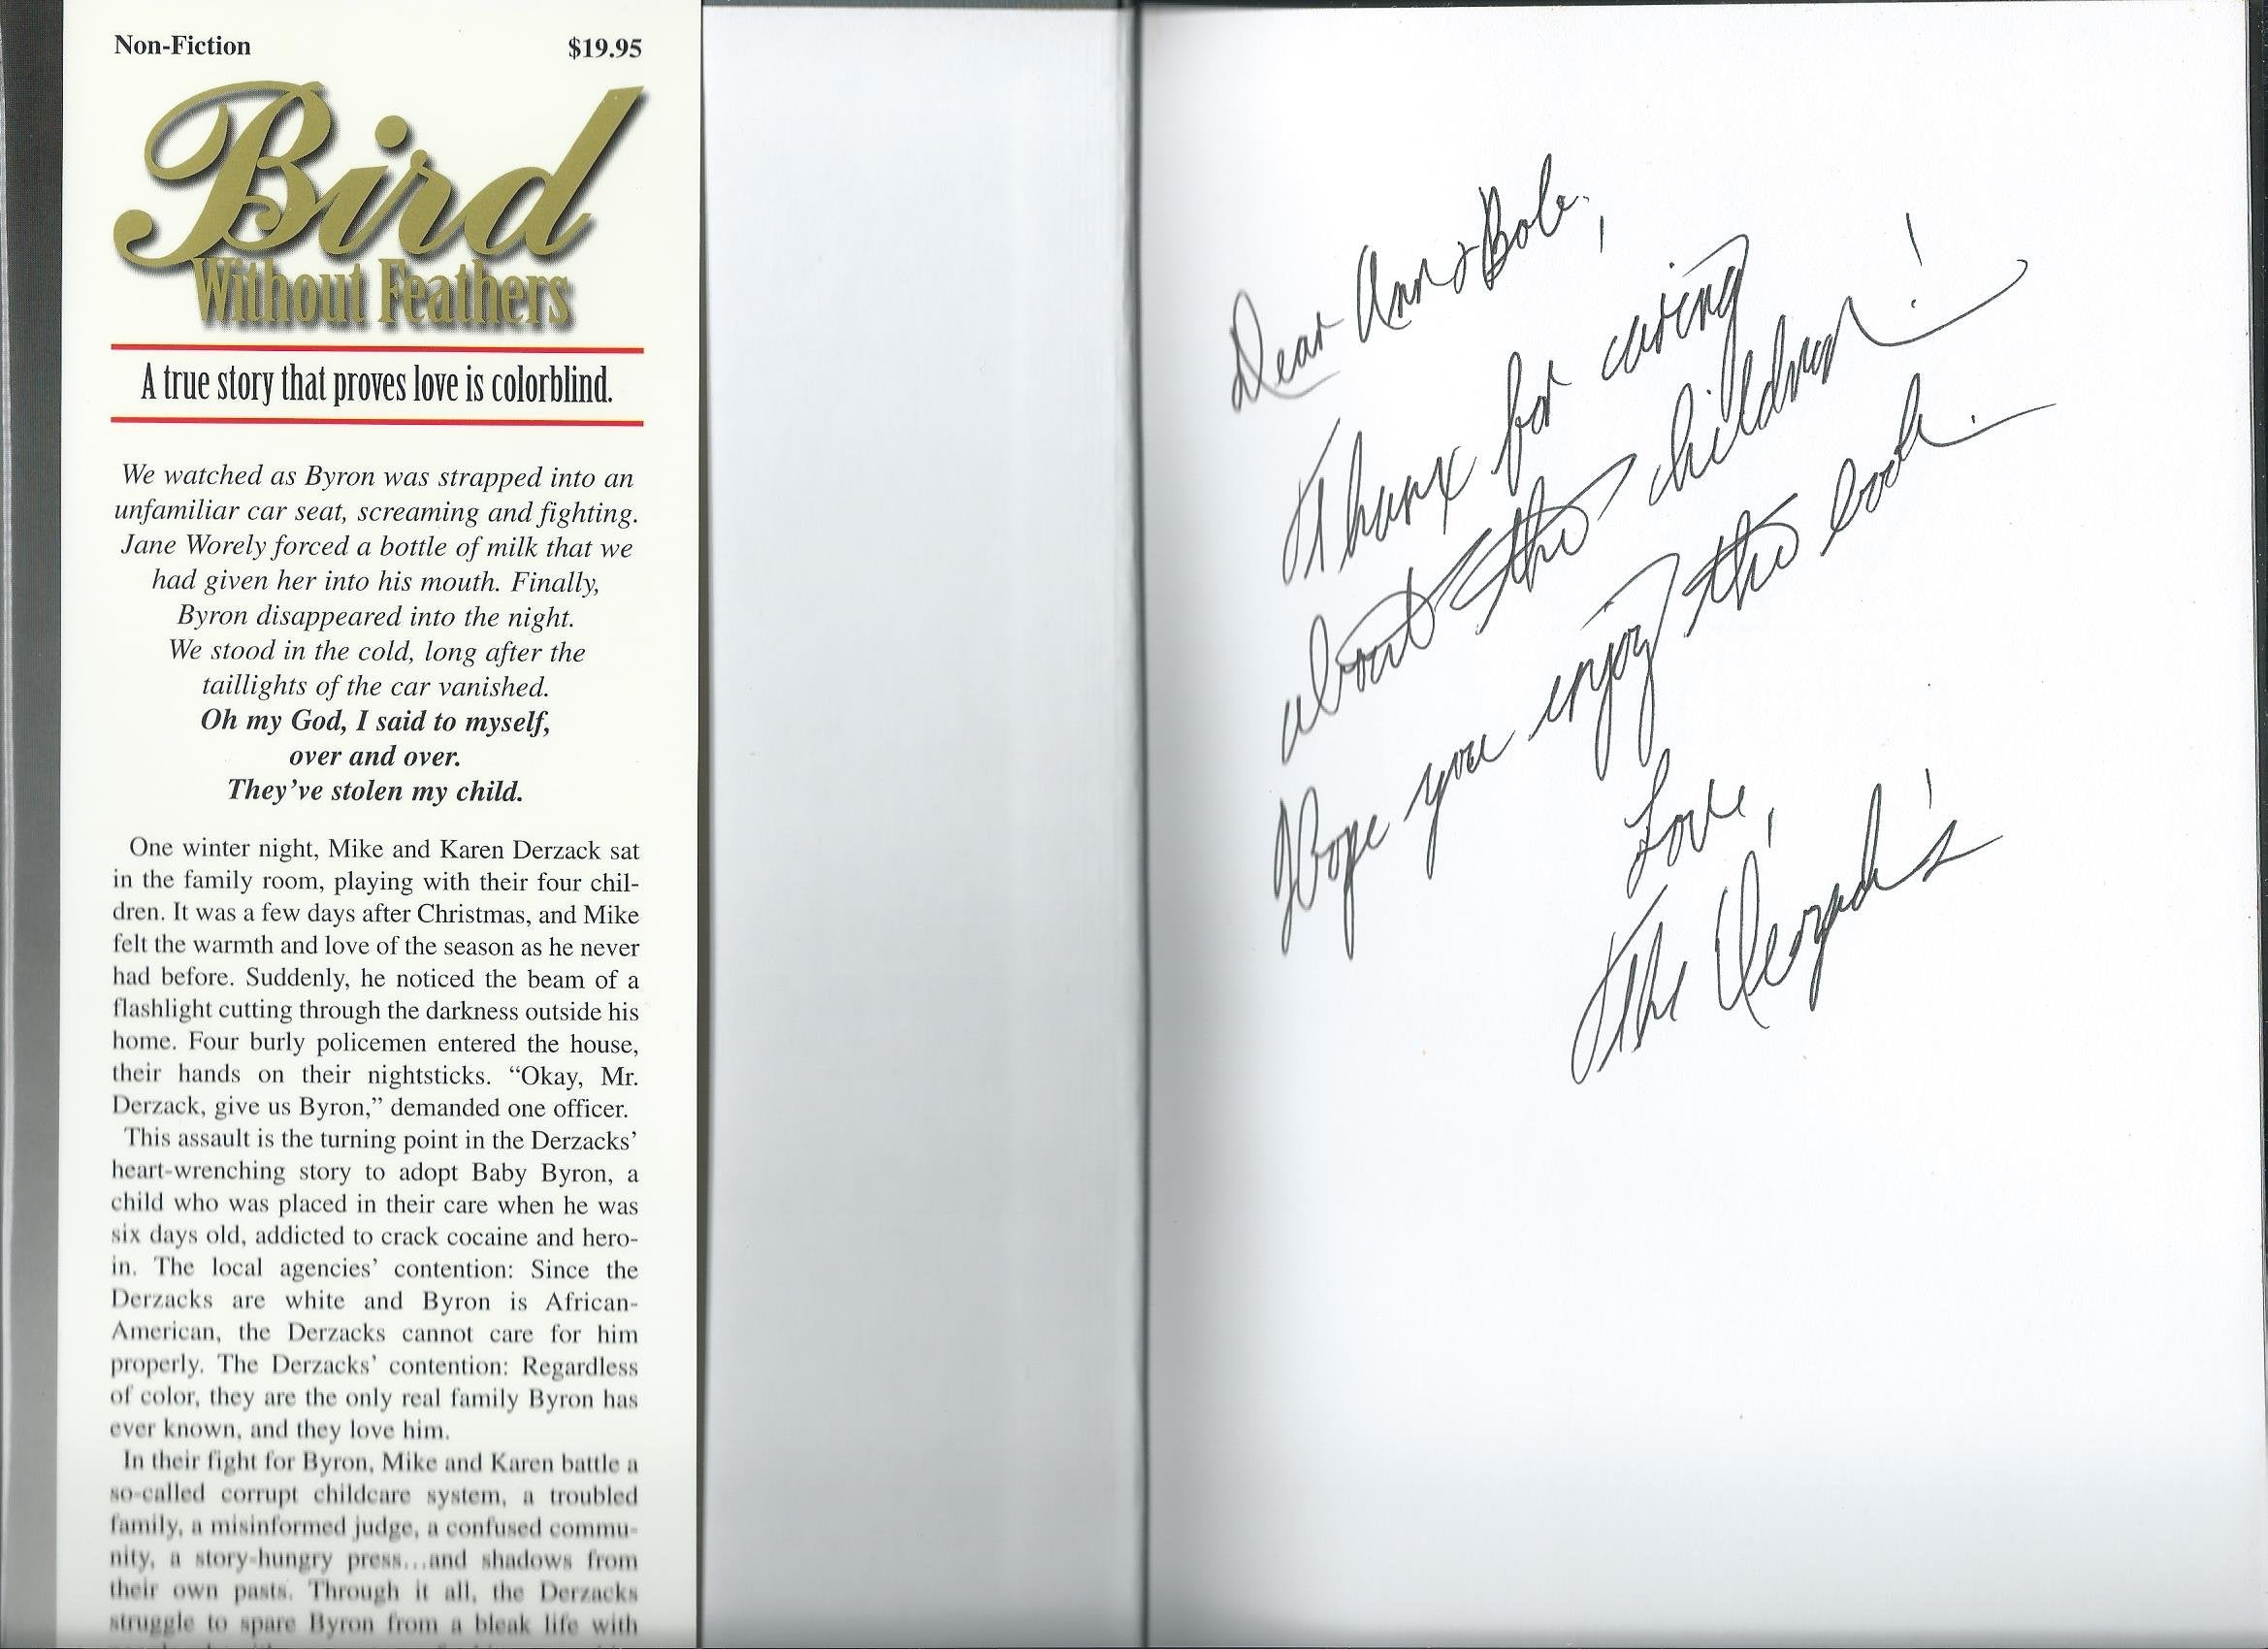 Non-Fiction $19.95
Bird
Without Feathers
A true story that proves love is colorblind.
We watched as Byron was strapped into an
unfamiliar car seat, screaming and fighting.
Jane Worely forced a bottle of milk that we
had given her into his mouth. Finally,
Byron disappeared into the night.
We stood in the cold, long after the
taillights of the car vanished.
Oh my God, I said to myself,
over and over.
They've stolen my child.
One winter night, Mike and Karen Derzack sat
in the family room, playing with their four chil-
dren. It was a few days after Christmas, and Mike
felt the warmth and love of the season as he never
had before. Suddenly, he noticed the beam of a
flashlight cutting through the darkness outside his
home. Four burly policemen entered the house,
their hands on their nightsticks. "Okay, Mr.
Derzack, give us Byron," demanded one officer.
This assault is the turning point in the Derzacks'
heart-wrenching story to adopt Baby Byron, a
child who was placed in their care when he was
six days old, addicted to crack cocaine and hero-
in. The local agencies' contention: Since the
Derzacks are white and Byron is African-
American, the Derzacks cannot care for him
properly. The Derzacks' contention: Regardless
of color, they are the only real family Byron has
ever known, and they love him.
In their fight for Byron, Mike and Karen battle a
so-called corrupt childcare system, a troubled
family, a misinformed judge, a confused commu-
nity, a story-hungry press...and shadows from
their own pasts. Through it all, the Derzacks
struggle to spare Byron from a bleak life with
Dear Ann & Bob,
Thanx for caring
about the children!
Hope you enjoy the book.
Love,
The Derzack's